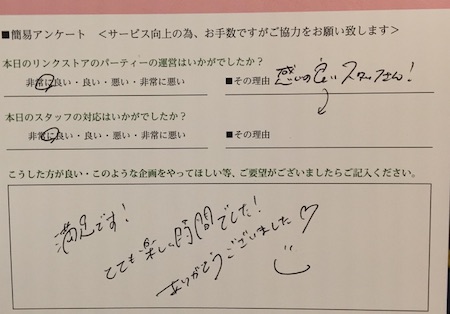 ■簡易アンケート ＜サービス向上の為、お手数ですがご協力をお願い致します＞
本日のリンクストアのパーティーの運営はいかがでしたか？
非常に良い・良い・悪い・非常に悪い
■その理由 感じの良いスタッフさん！
本日のスタッフの対応はいかがでしたか？
非常に良い・良い・悪い・非常に悪い
■その理由
こうした方が良い・このような企画をやってほしい等、ご要望がございましたらご記入ください。
満足です！
とても楽しい時間でした！
ありがとうございました♡